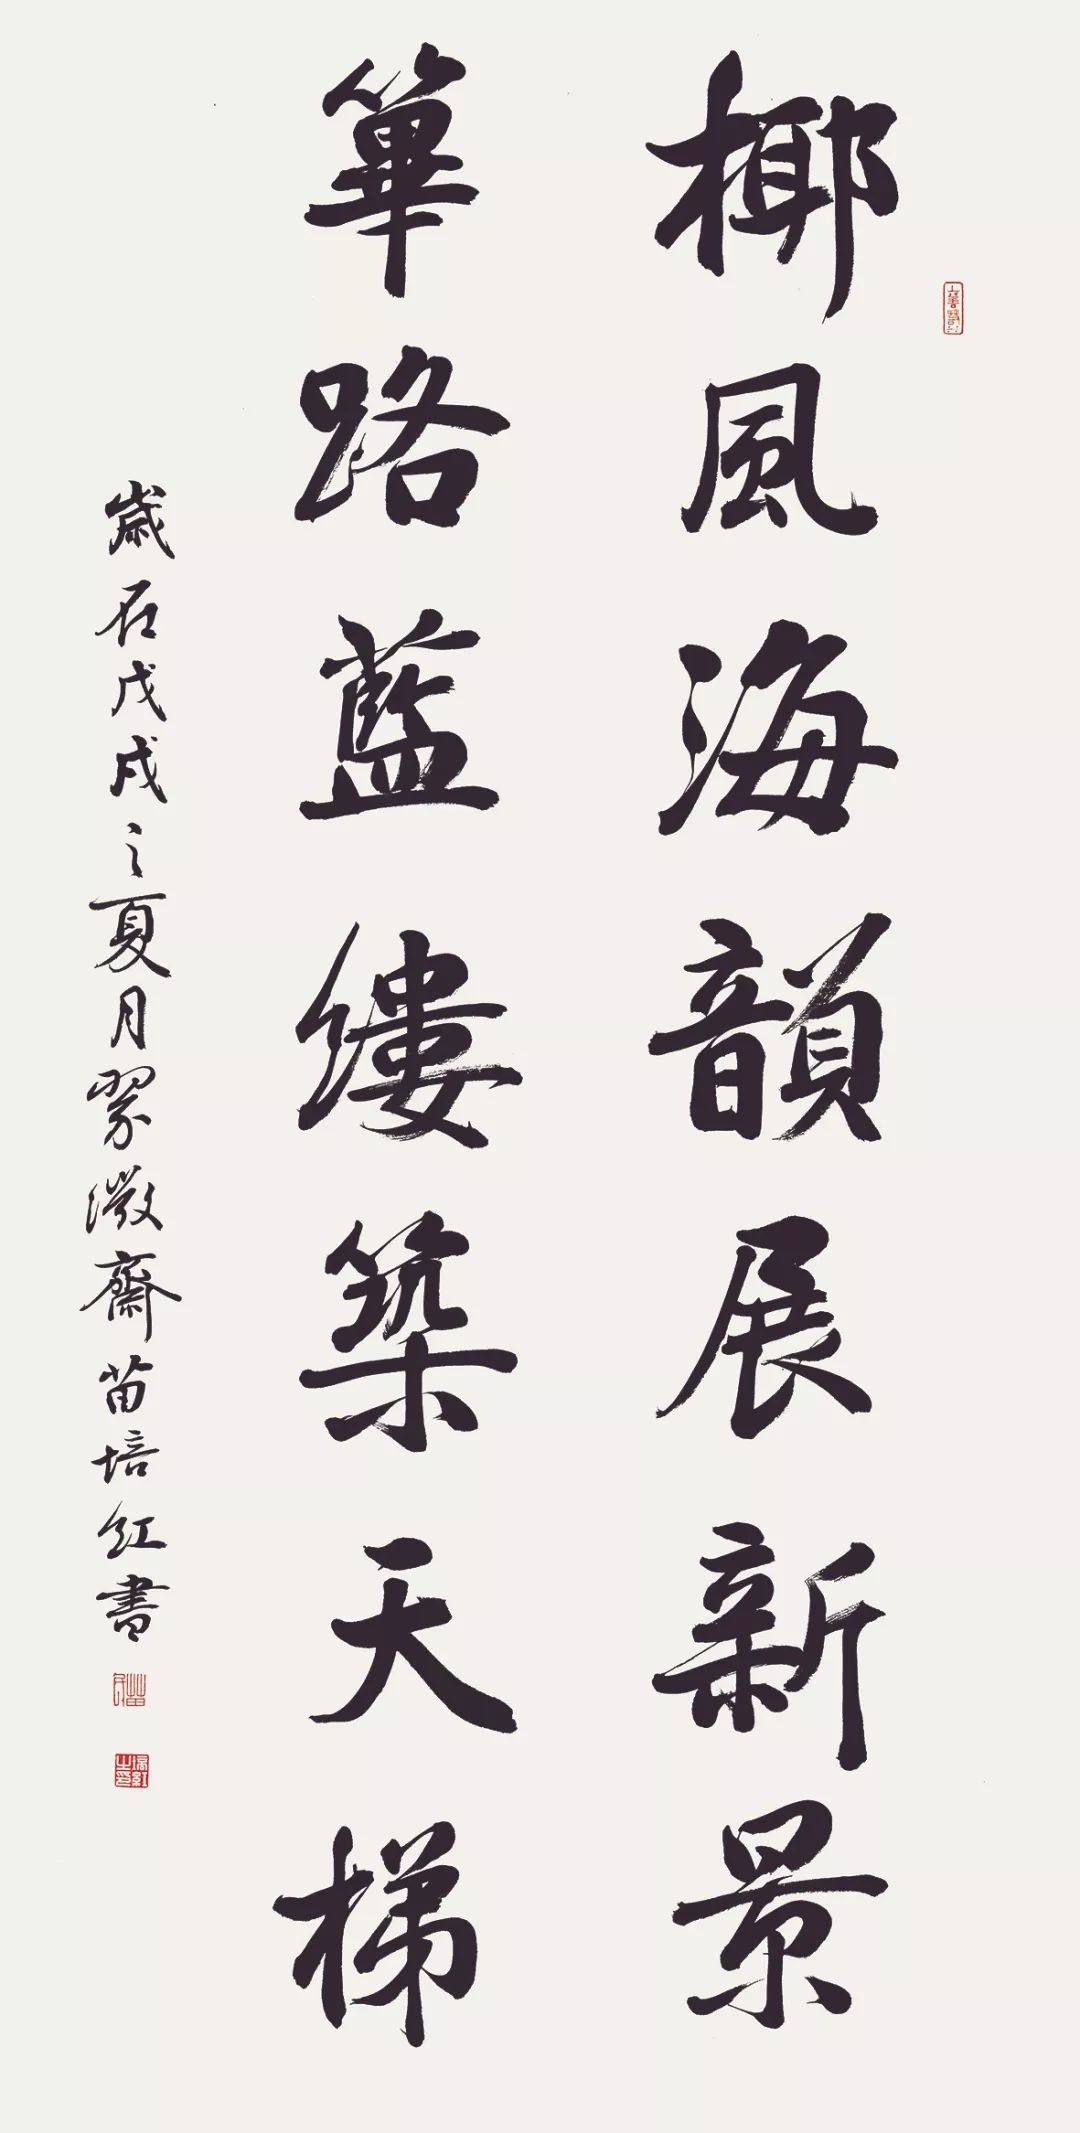 椰風海韻展新景
篳路藍縷築天梯
歲在戊戌之夏月翠微齋苗培紅書